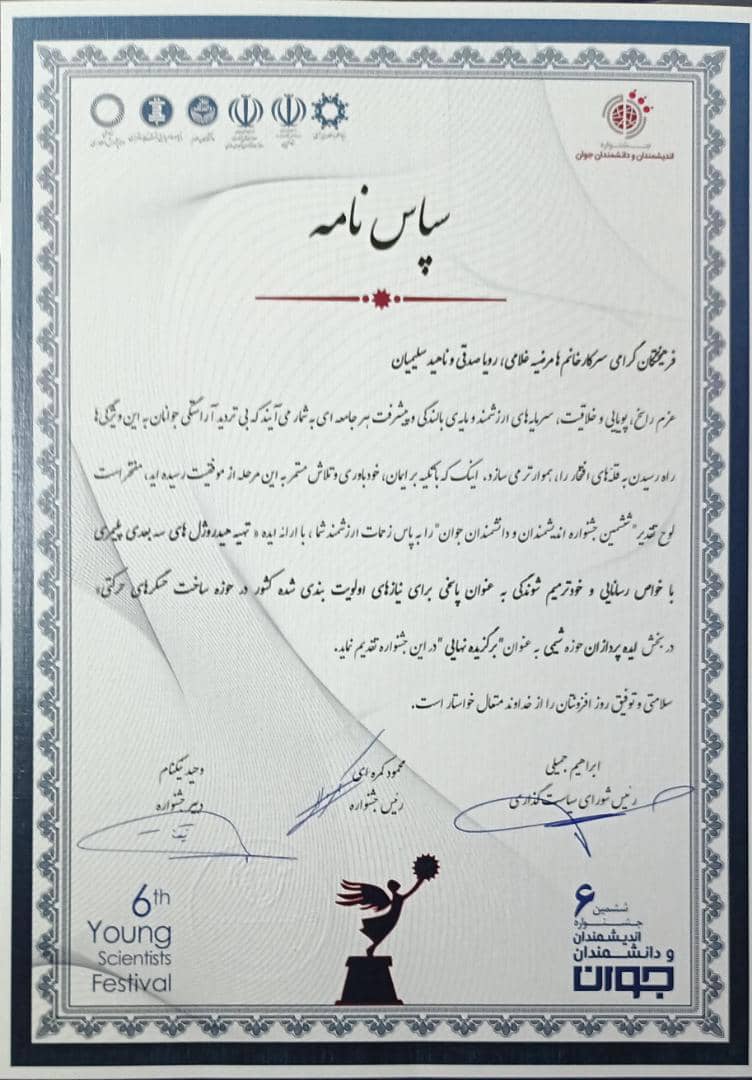 جشنواره
اندیشمندان و دانشمندان جوان
سپاس نامه
فرهیختگان گرامی سرکار خانم ها مرضیه غلامی، رویا صدقی و ناهید سلیمیان
عزم راسخ، پویایی و خلاقیت، سرمایه های ارزشمند و مایه ی بالندگی و پیشرفت هر جامعه ای به شمار می آیند که بی تردید آراستگی جوانان به این ویژگی ها
راه رسیدن به قله های افتخار را، هموارتر می سازد. اینک که با تکیه بر ایمان، خودباوری و تلاش مستمر به این مرحله از موفقیت رسیده اید، مفتخر است
لوح تقدیر "ششمین جشنواره اندیشمندان و دانشمندان جوان" را به پاس زحمات ارزشمند شما، با ارائه ایده « تهیه هیدروژل های سه بعدی پلیمری
با خواص رسانایی و خودترمیم شوندگی به عنوان پاسخی برای نیازهای اولویت بندی شده کشور در حوزه ساخت حسگرهای حرکتی»
در بخش ایده پردازان حوزه شیمی به عنوان "برگزیده نهایی" در این جشنواره تقدیم نماید.
سلامتی و توفیق روز افزونتان را از خداوند متعال خواستار است.
ابراهیم جمیلی
رئیس شورای سیاست گذاری
محمود کمره ای
رئیس جشنواره
وحید نیکنام
دبیر جشنواره
6th
Young
Scientists
Festival
۶ ششمین
جشنواره
اندیشمندان
و دانشمندان
جوان